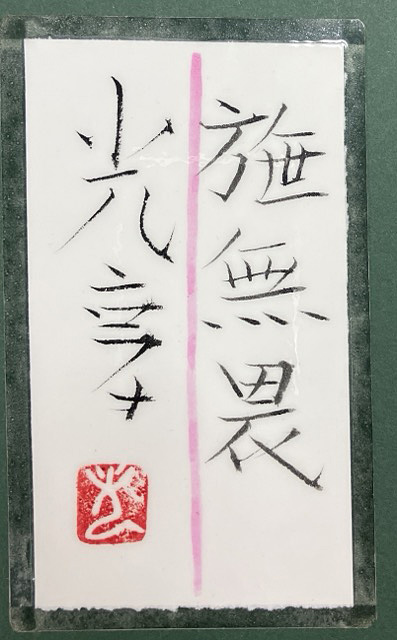 施無畏
光